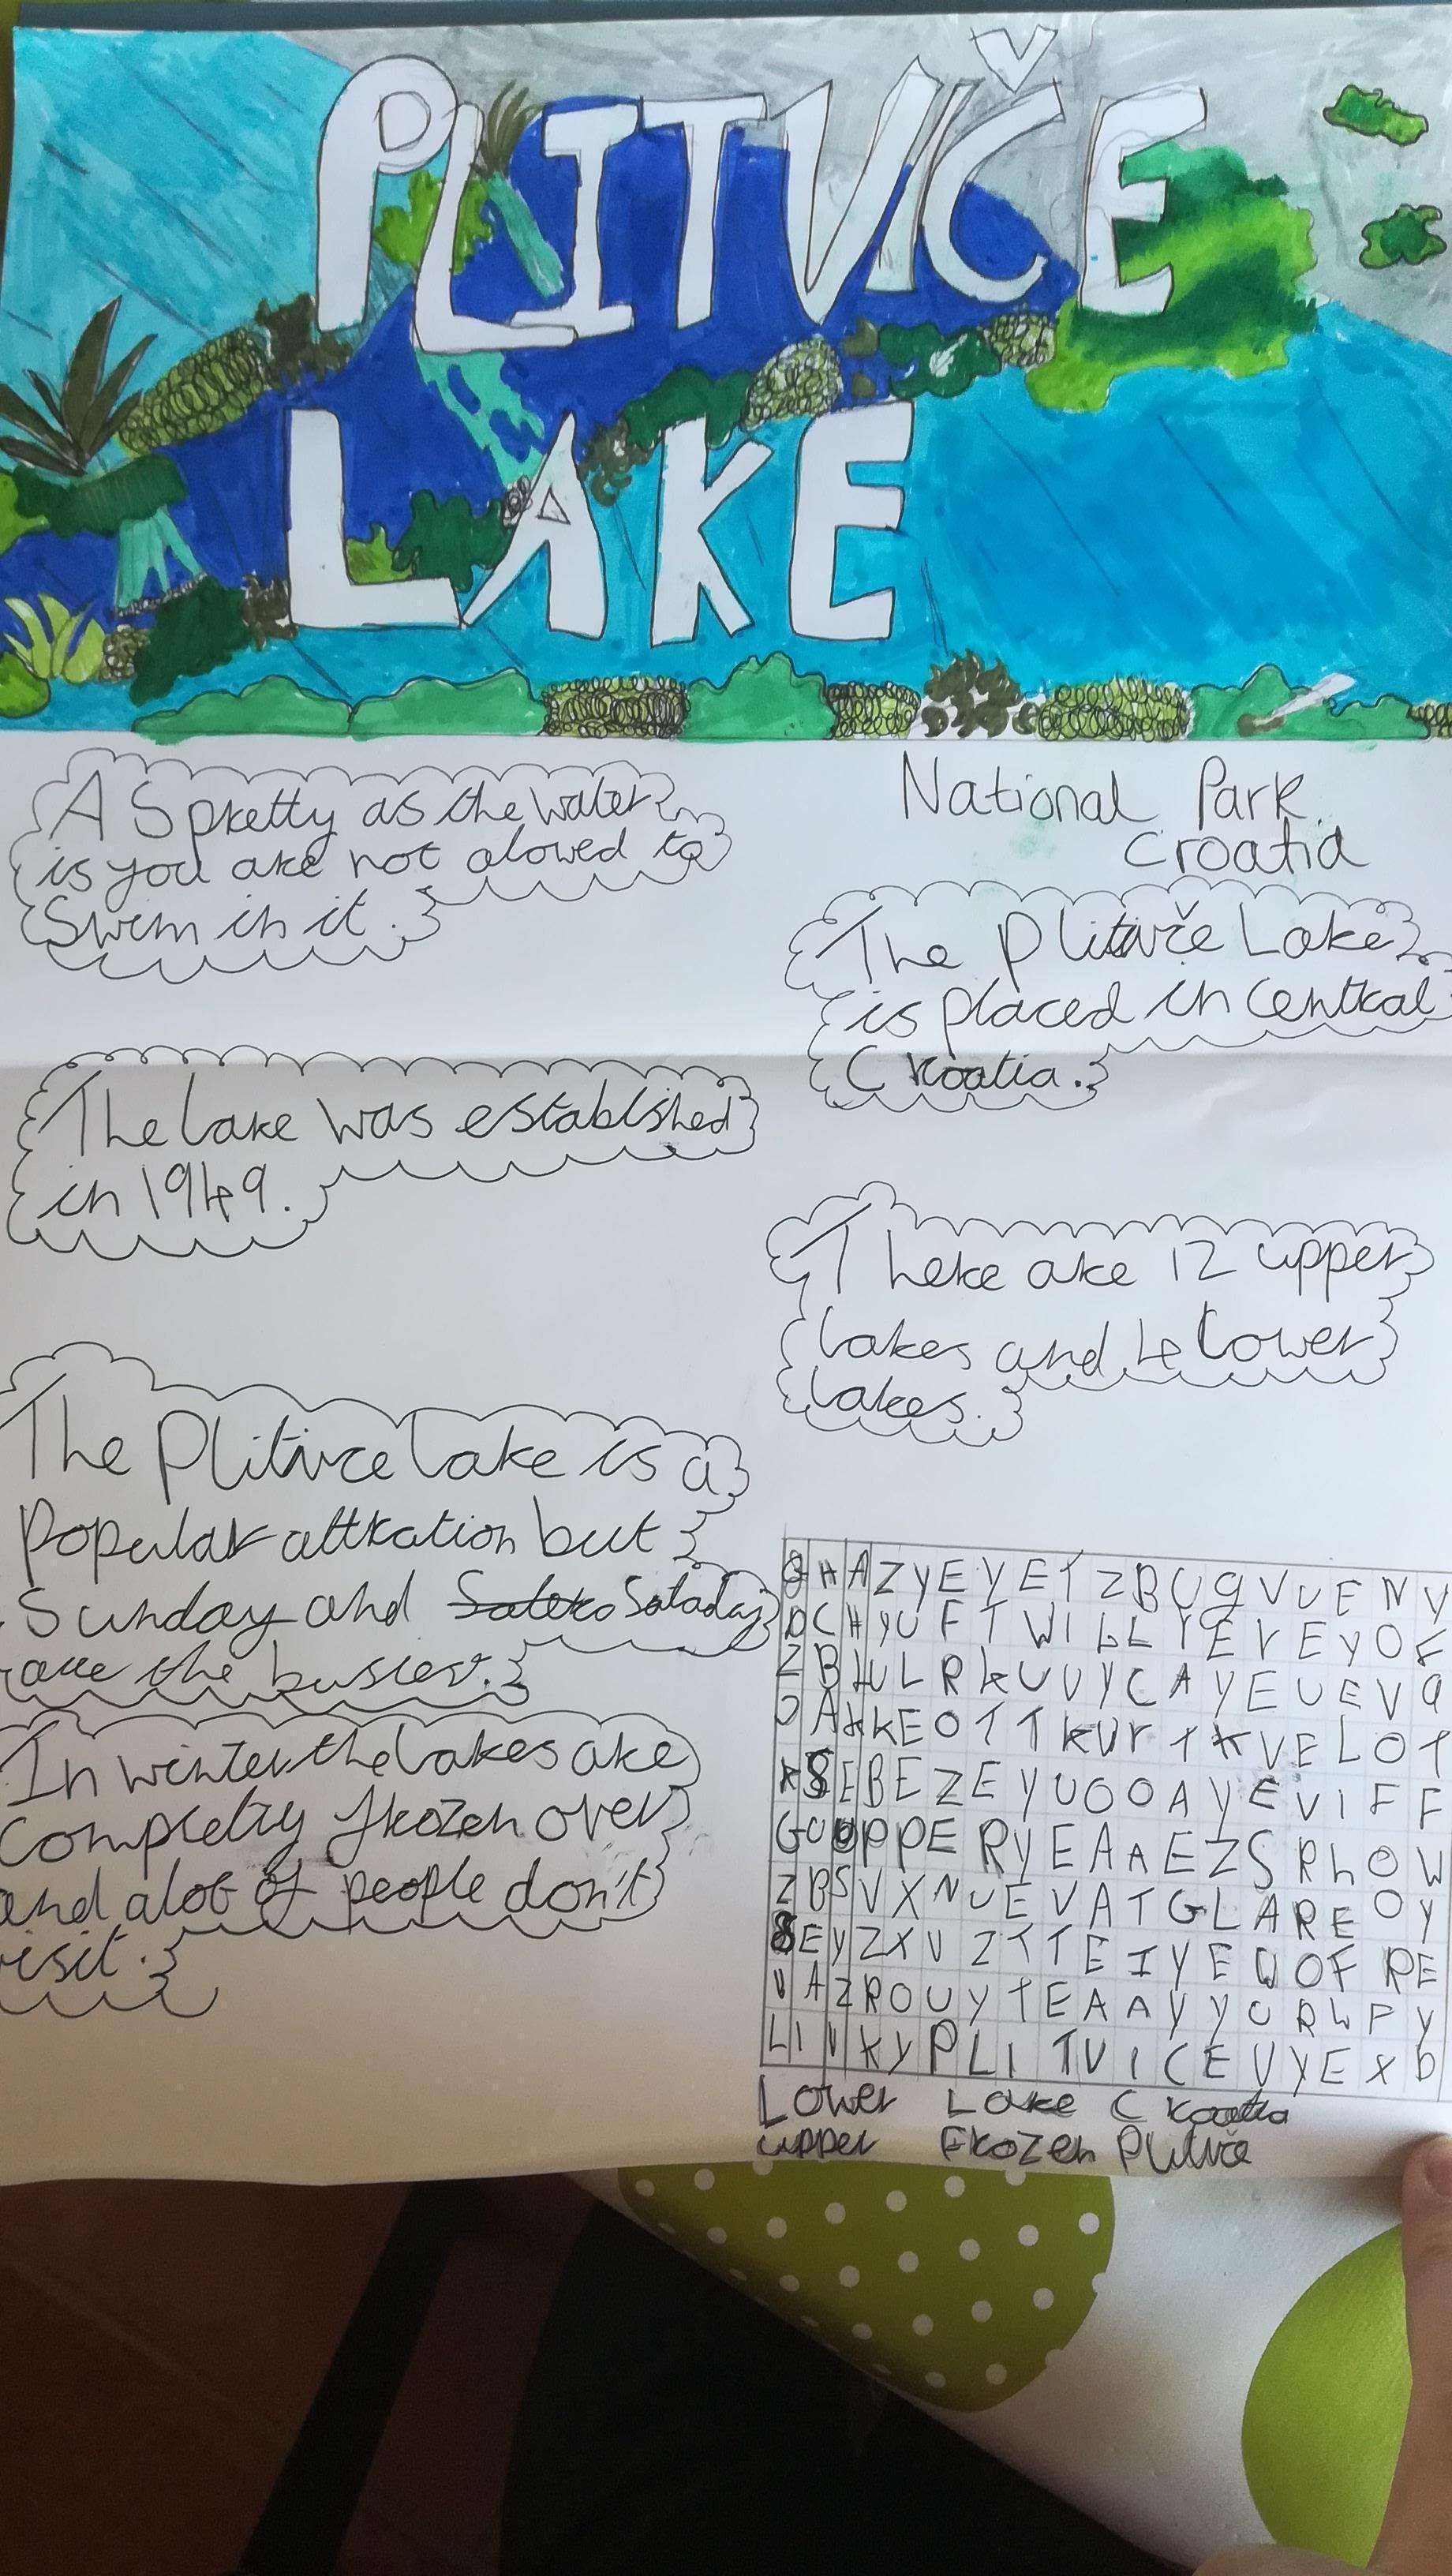 PLITVIČE
LAKE
National Park
Croatia
AS pretty as the water
is you are not alowed to
Swim in it.
The Plitvče Lake
is placed in Central
Croatia.
The lake was establshed
in 1949.
There are 12 upper
lakes and 4 lower
lakes.
The Plitivce lake is a
Popular attration but
Sunday and Sataday
are the busier.
In winter the lakes are
Completly frozen over
and alot of people don't
visit.
H A Z Y E Y E T Z B U G V U E N V
D C H Y U F T W I L L Y E V E Y O F
Z B H U L R K U U Y C A Y E U E V Q
E O T T K U Y T K V E L O T
E B E Z E Y U O O A Y E V I F F
G U U P P E R Y E A A E Z S R L O W
Z B S V X N U E V A T G L A R E O Y
E Y Z X U Z T T E I Y E W O F R E
U A Z R O U Y T E A A Y Y U R W P Y
L I V K Y P L I T V I C E V Y E X D
Lower Lake Croatia
upper Frozen Plitvče